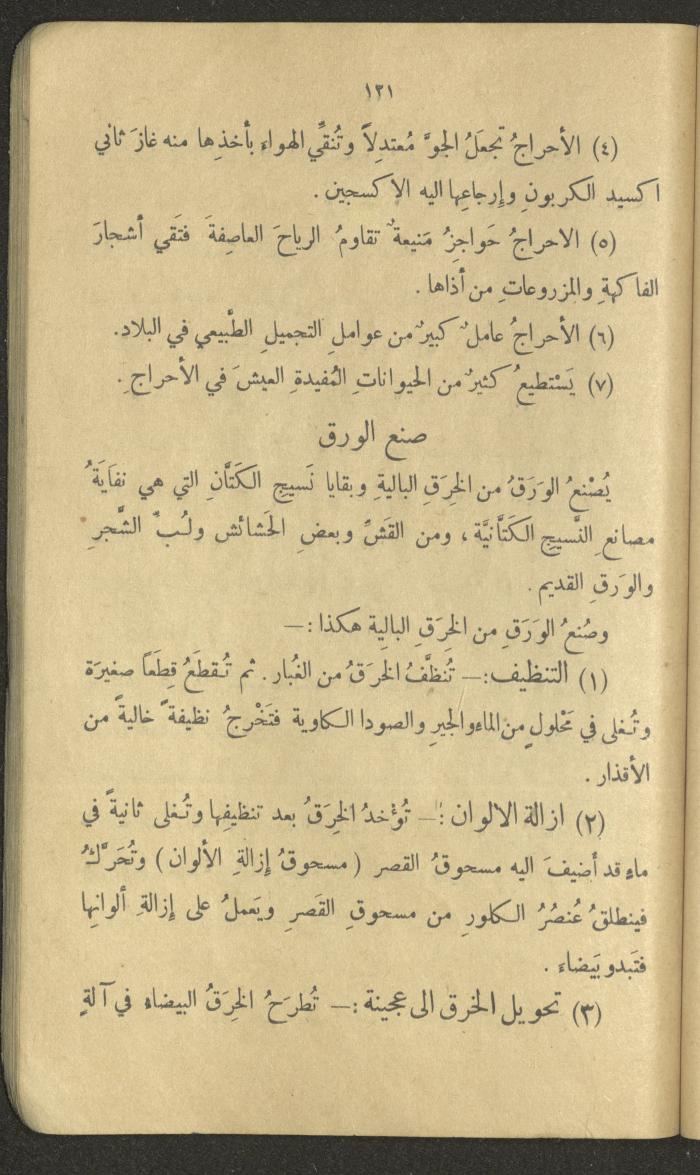 ١٢١
(٤) الأحراجُ تجعَلُ الجوَّ مُعتدِلاً وتُنقِّي الهواء بأخذِها منه غازَ ثاني
اكسيد الكربونِ وإِرجاعِها اليه الاكسجين .
(٥) الاحراجُ حَواجِزُ مَنيعةٌ تقاومُ الرياحَ العاصِفةَ فتَقي أشجارَ
الفاكهةِ والمزروعاتِ من أذاها .
(٦) الأحراجُ عاملٌ كبيرٌ من عواملِ التجميلِ الطَّبيعي في البلاد.
(٧) يَسْتطيعُ كثيرٌ من الحيواناتِ المُفيدةِ العيشَ في الأحراجِ .
صنع الورق
يُصْنعُ الوَرَقُ من الخِرَقِ الباليةِ وبقايا نَسيجِ الكَتَّانِ التي هي نفايَةُ
مصانعِ النَّسيجِ الكَتَّانيَّة ، ومن القَشِّ وبعضِ الحَشائش ولُبِّ الشَّجرِ
والوَرقِ القديم .
وصُنعُ الوَرَقِ من الخِرَقِ البالِية هكذا :—
(١) التنظيف :— تُنظَّفُ الخرَقُ من الغُبار . ثم تُقطَعُ قِطَعَاً صغيرَة
وتُغلى في مَحْلولٍ من الماءِ والجيرِ والصودا الكاوية فتَخْرجُ نظيفةً خاليةً من
الأقذار .
(٢) ازالة الالوان :— تُؤْخذُ الخِرَقُ بعد تنظيفِها وتُغلى ثانيةً في
ماءٍ قد أضيفَ اليه مسحوقُ القصر ( مسحوقُ إزالةِ الألوان ) وتُحَرَّكُ
فينطلقُ عُنصُرُ الكلورِ من مسحوقِ القَصرِ ويَعملُ على إزالةِ ألوانِها
فتَبدو بَيضاء .
(٣) تحويل الخرق الى عجينة :— تُطرَحُ الخِرَقُ البيضاء في آلةٍ